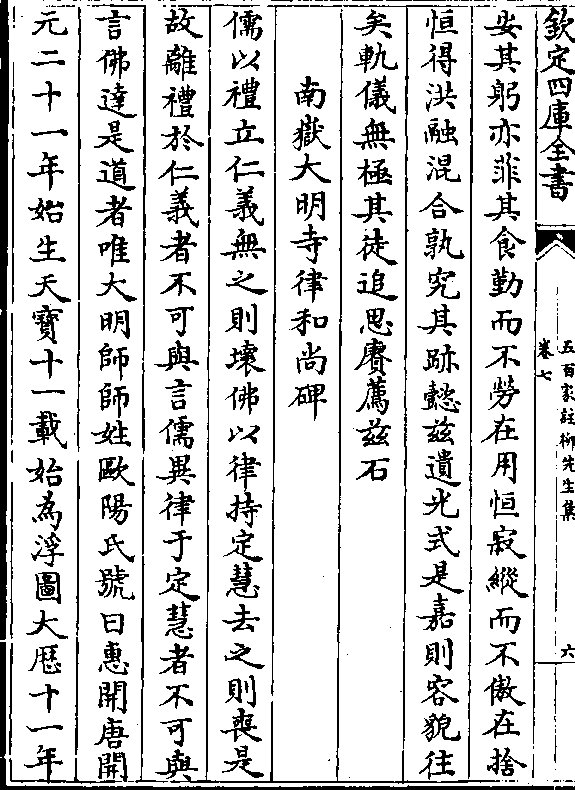 欽定四庫全書
五百家註柳先生集
卷七
六
安其躬亦菲其食勤而不勞在用恒寂縱而不傲在捨
恒得洪融混合孰究其跡懿兹遺光式是嘉則容貌往
矣軌儀無極其徒追思賡薦兹石
南嶽大明寺律和尚碑
儒以禮立仁義無之則壞佛以律持定慧去之則喪是
故離禮於仁義者不可與言儒異律于定慧者不可與
言佛達是道者唯大明師師姓歐陽氏號曰惠開唐開
元二十一年始生天寶十一載始為浮圖大歷十一年